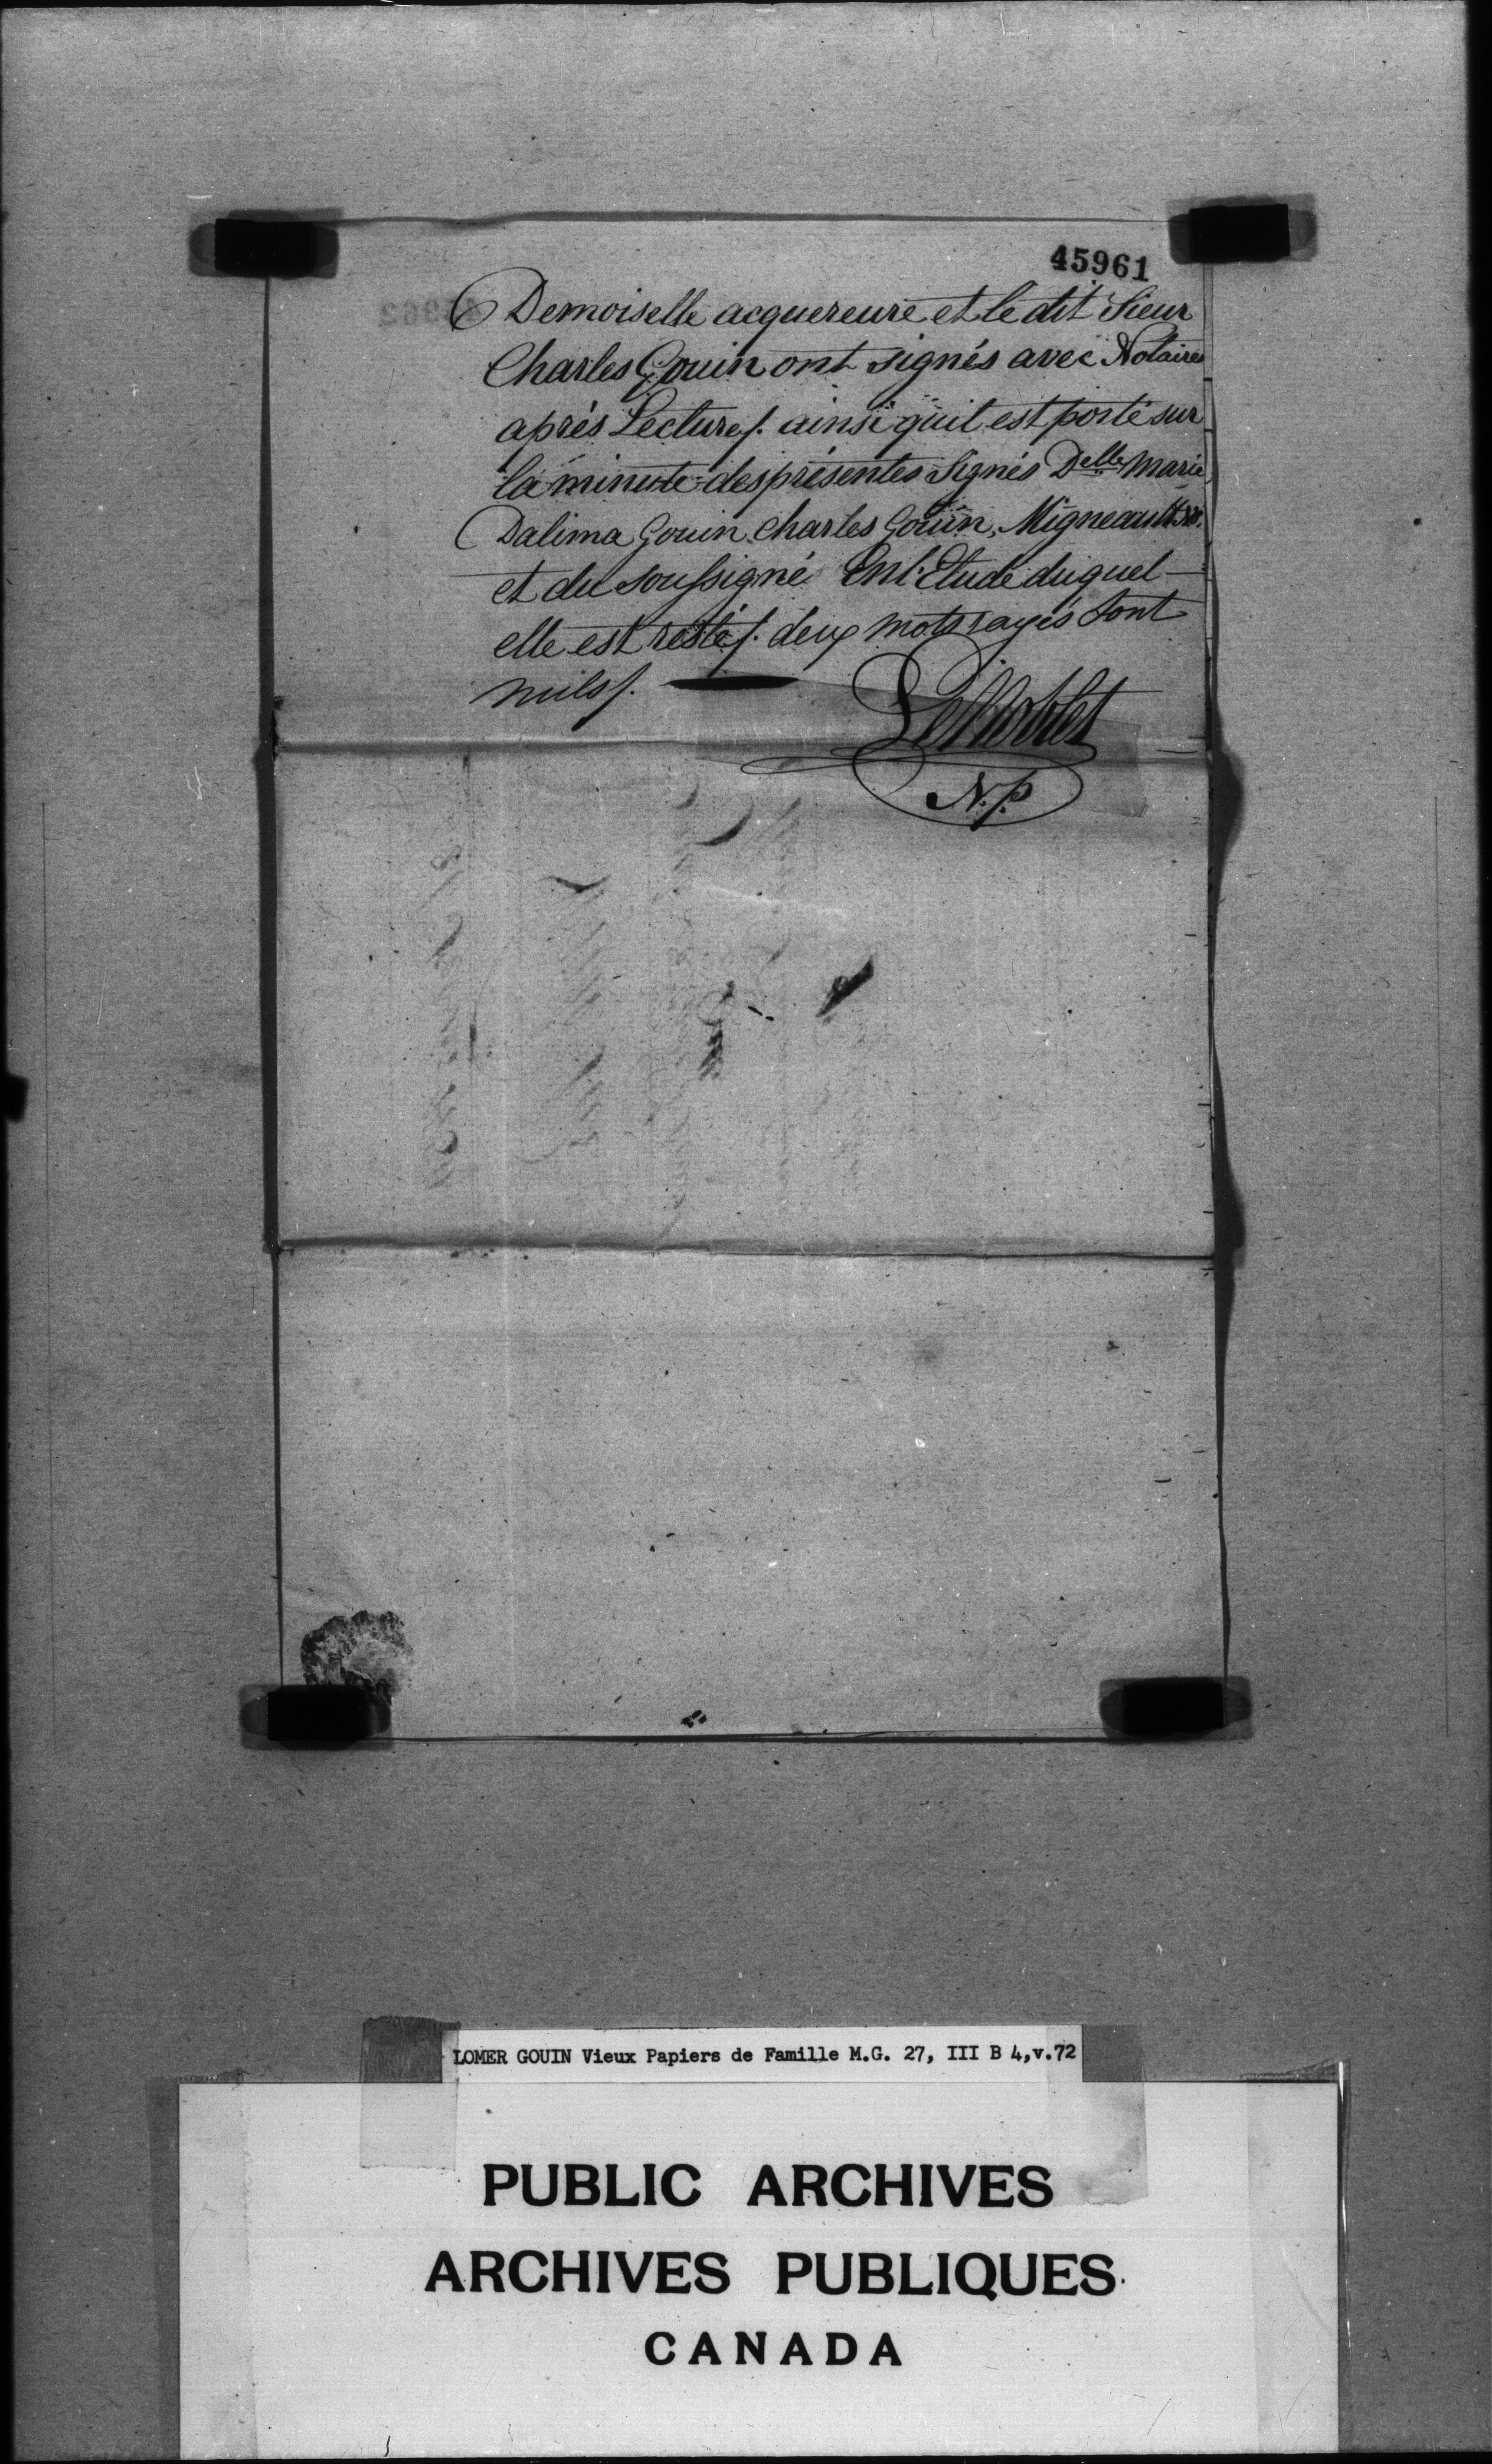 45961
Demoiselle acquereure et le dit Sieur
Charles Gouin ont signés avec Notaires
aprés Lecture/. ainsi quil est porté sur
la minute des présentes Signés Delle Marie
Dalima Gouin Charles Gouin, Migneault
et du soussigné En l'Etude duquel
elle est resté/. deux mots rayés sont
nuls/.
N.P.
LOMER GOUIN Vieux Papiers de Famille M.G. 27, III B 4,v.72
PUBLIC ARCHIVES
ARCHIVES PUBLIQUES
CANADA